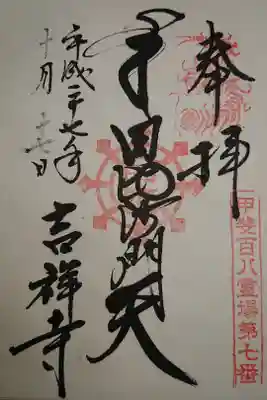 奉拝
甲斐百八霊場第七番
毘沙門天
平成二十七年
十月十七日
吉祥寺